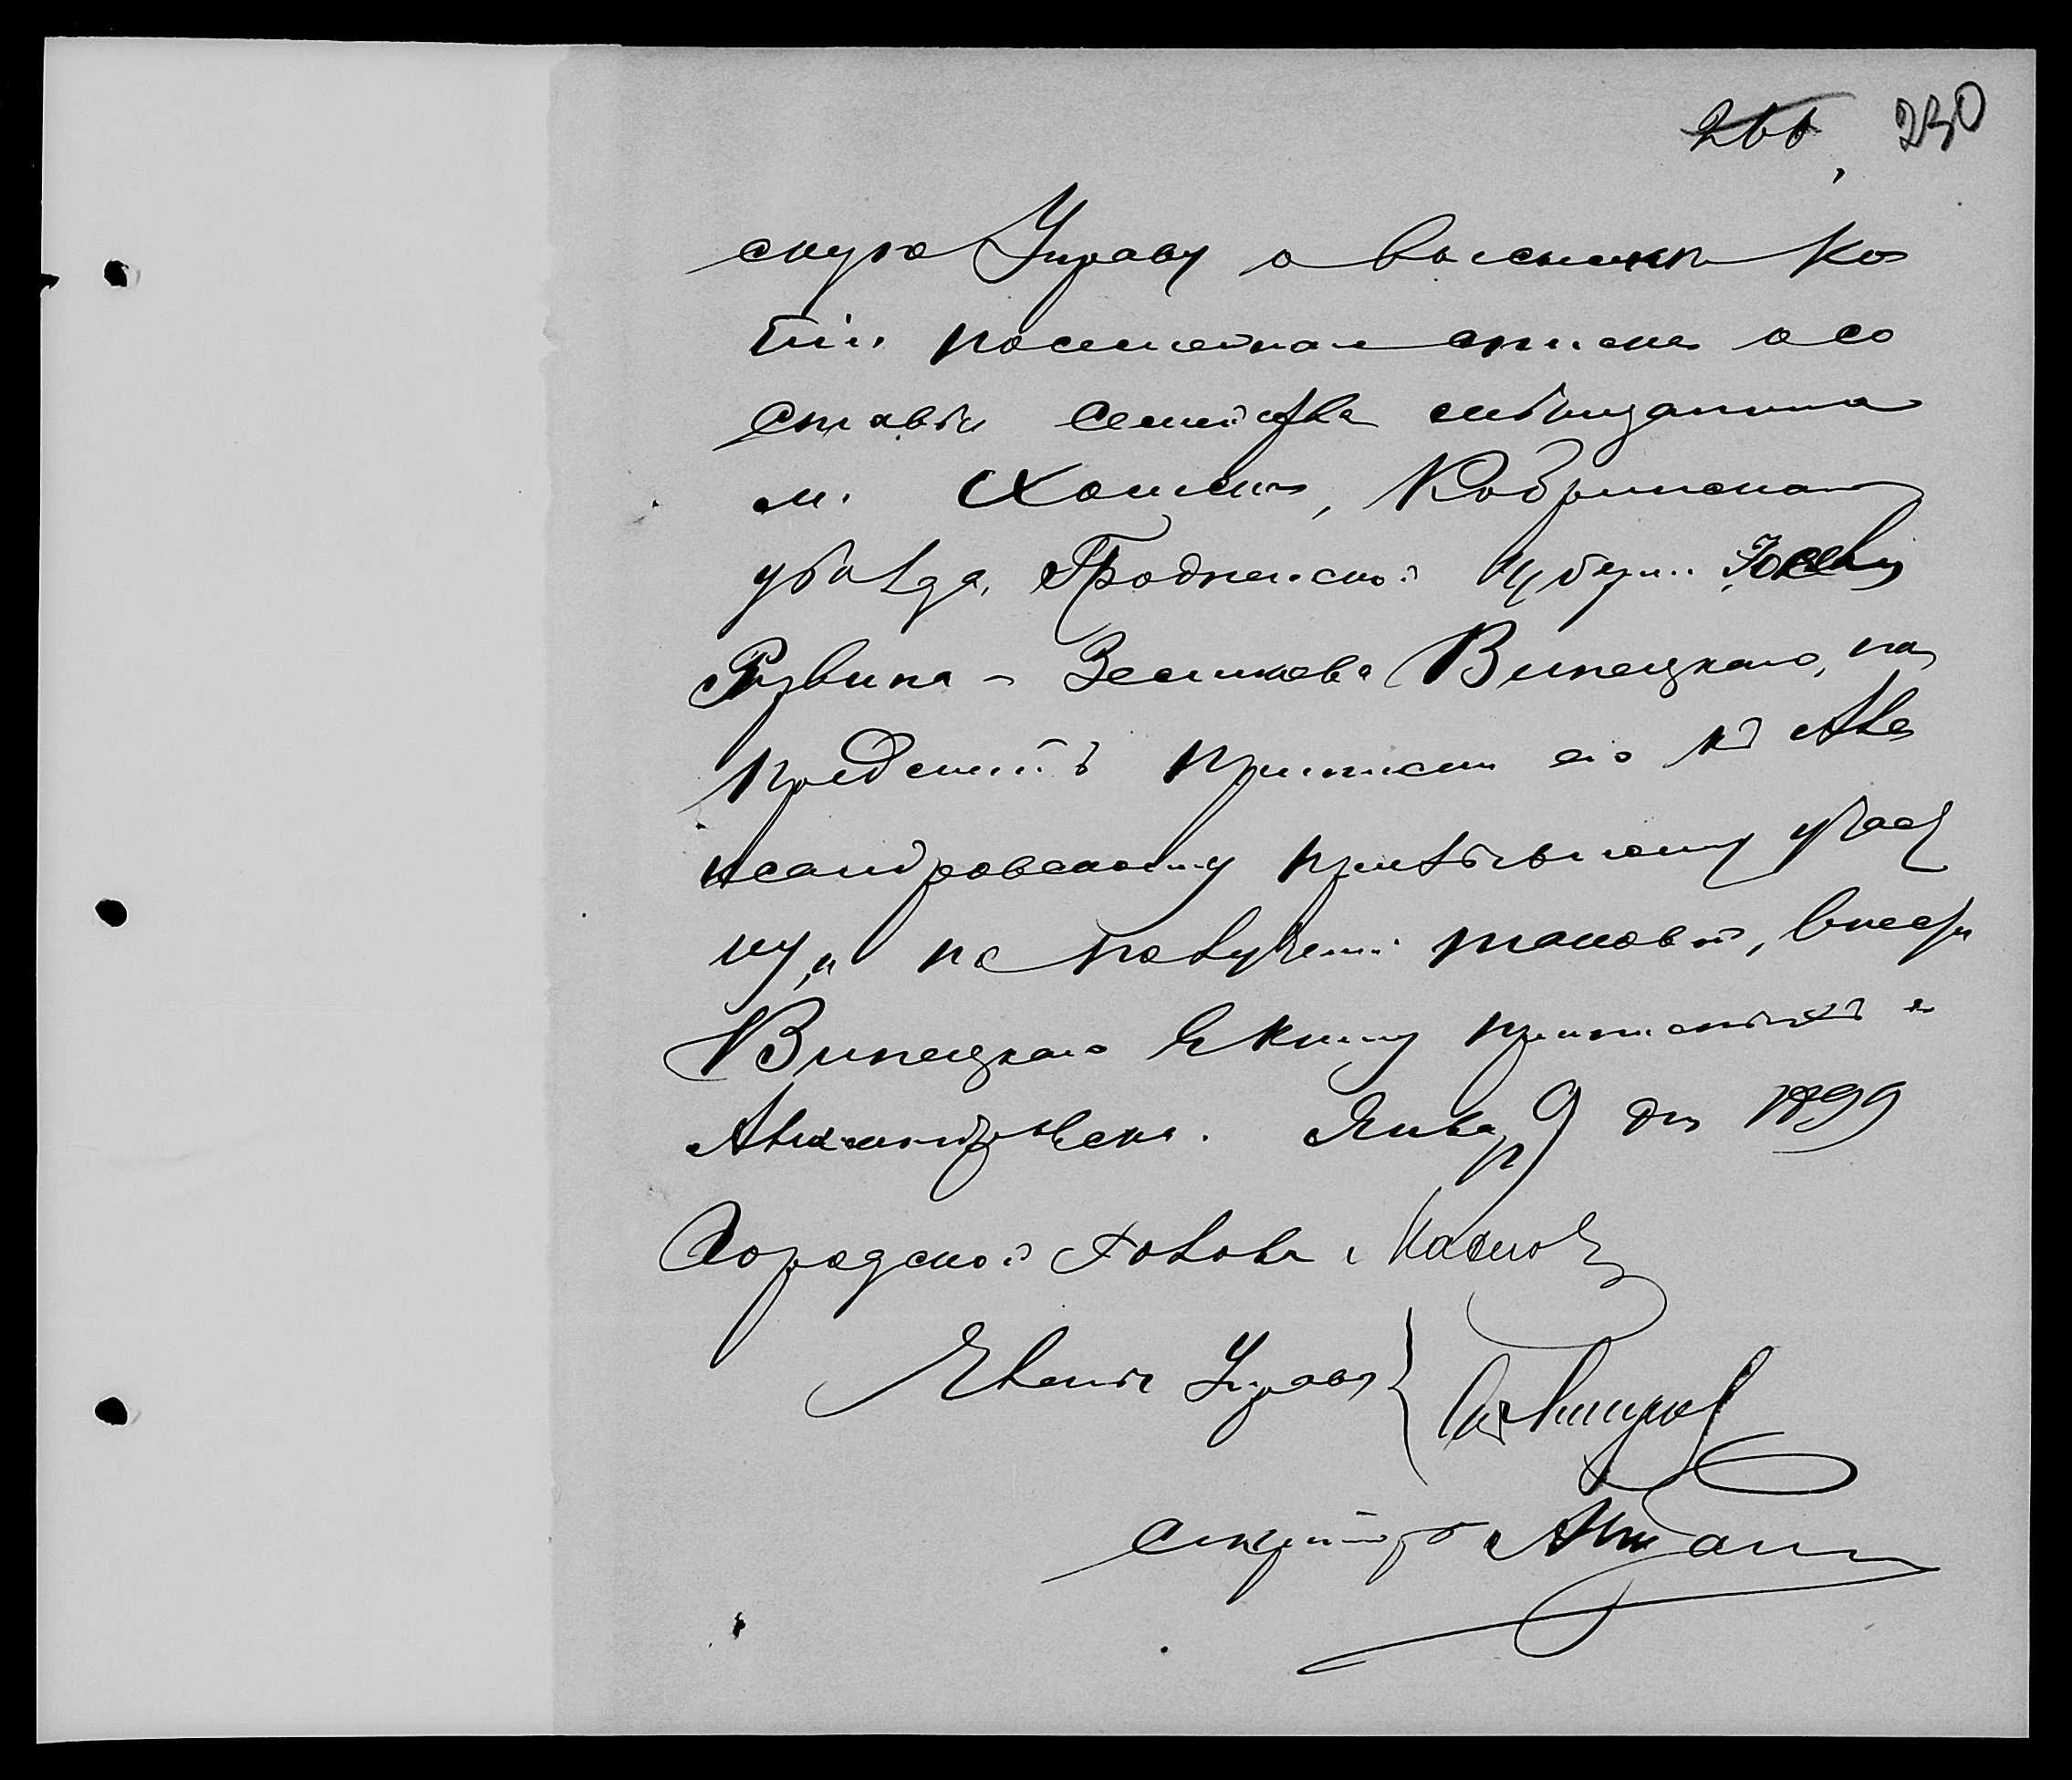 266 230
скую Управу о высылкѣ ко
піи посемейнаго списка о со
ставѣ семейства мѣщанина
м. Хомска, Кобринскаго
уѣзда, Гродненской губерніи
Рувина-Зеликова Винецкаго, на
предметъ приписки его къ Але
ксандровскому призывному участ
ку, и по полученіи таковой, внести
Винецкаго въ книгу приписныхъ г.
Александровска. Января 9 дня 1899
Городской Голова
Члены Управы {
Секретарь